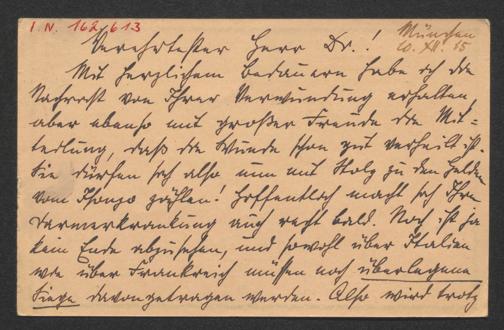 I. N. 162.613
München
10. XII. 15
Verehrtester Herr Dr.!
Mit herzlichem Bedauern habe ich die
Nachricht von Ihrer Verwundung erhalten
aber ebenso mit großer Freude die Mit=
teilung, daß die Wunde schon gut verheilt ist.
Sie dürfen sich also nun mit Stolz zu den Helden
vom Isonzo zählen! Hoffentlich macht sich Ihre
Darmerkrankung auch recht bald. Noch ist ja
kein Ende abzusehen, und sowohl über Italien
wie über Frankreich müssen noch überlegene
Siege davongetragen werden. Also wird trotz